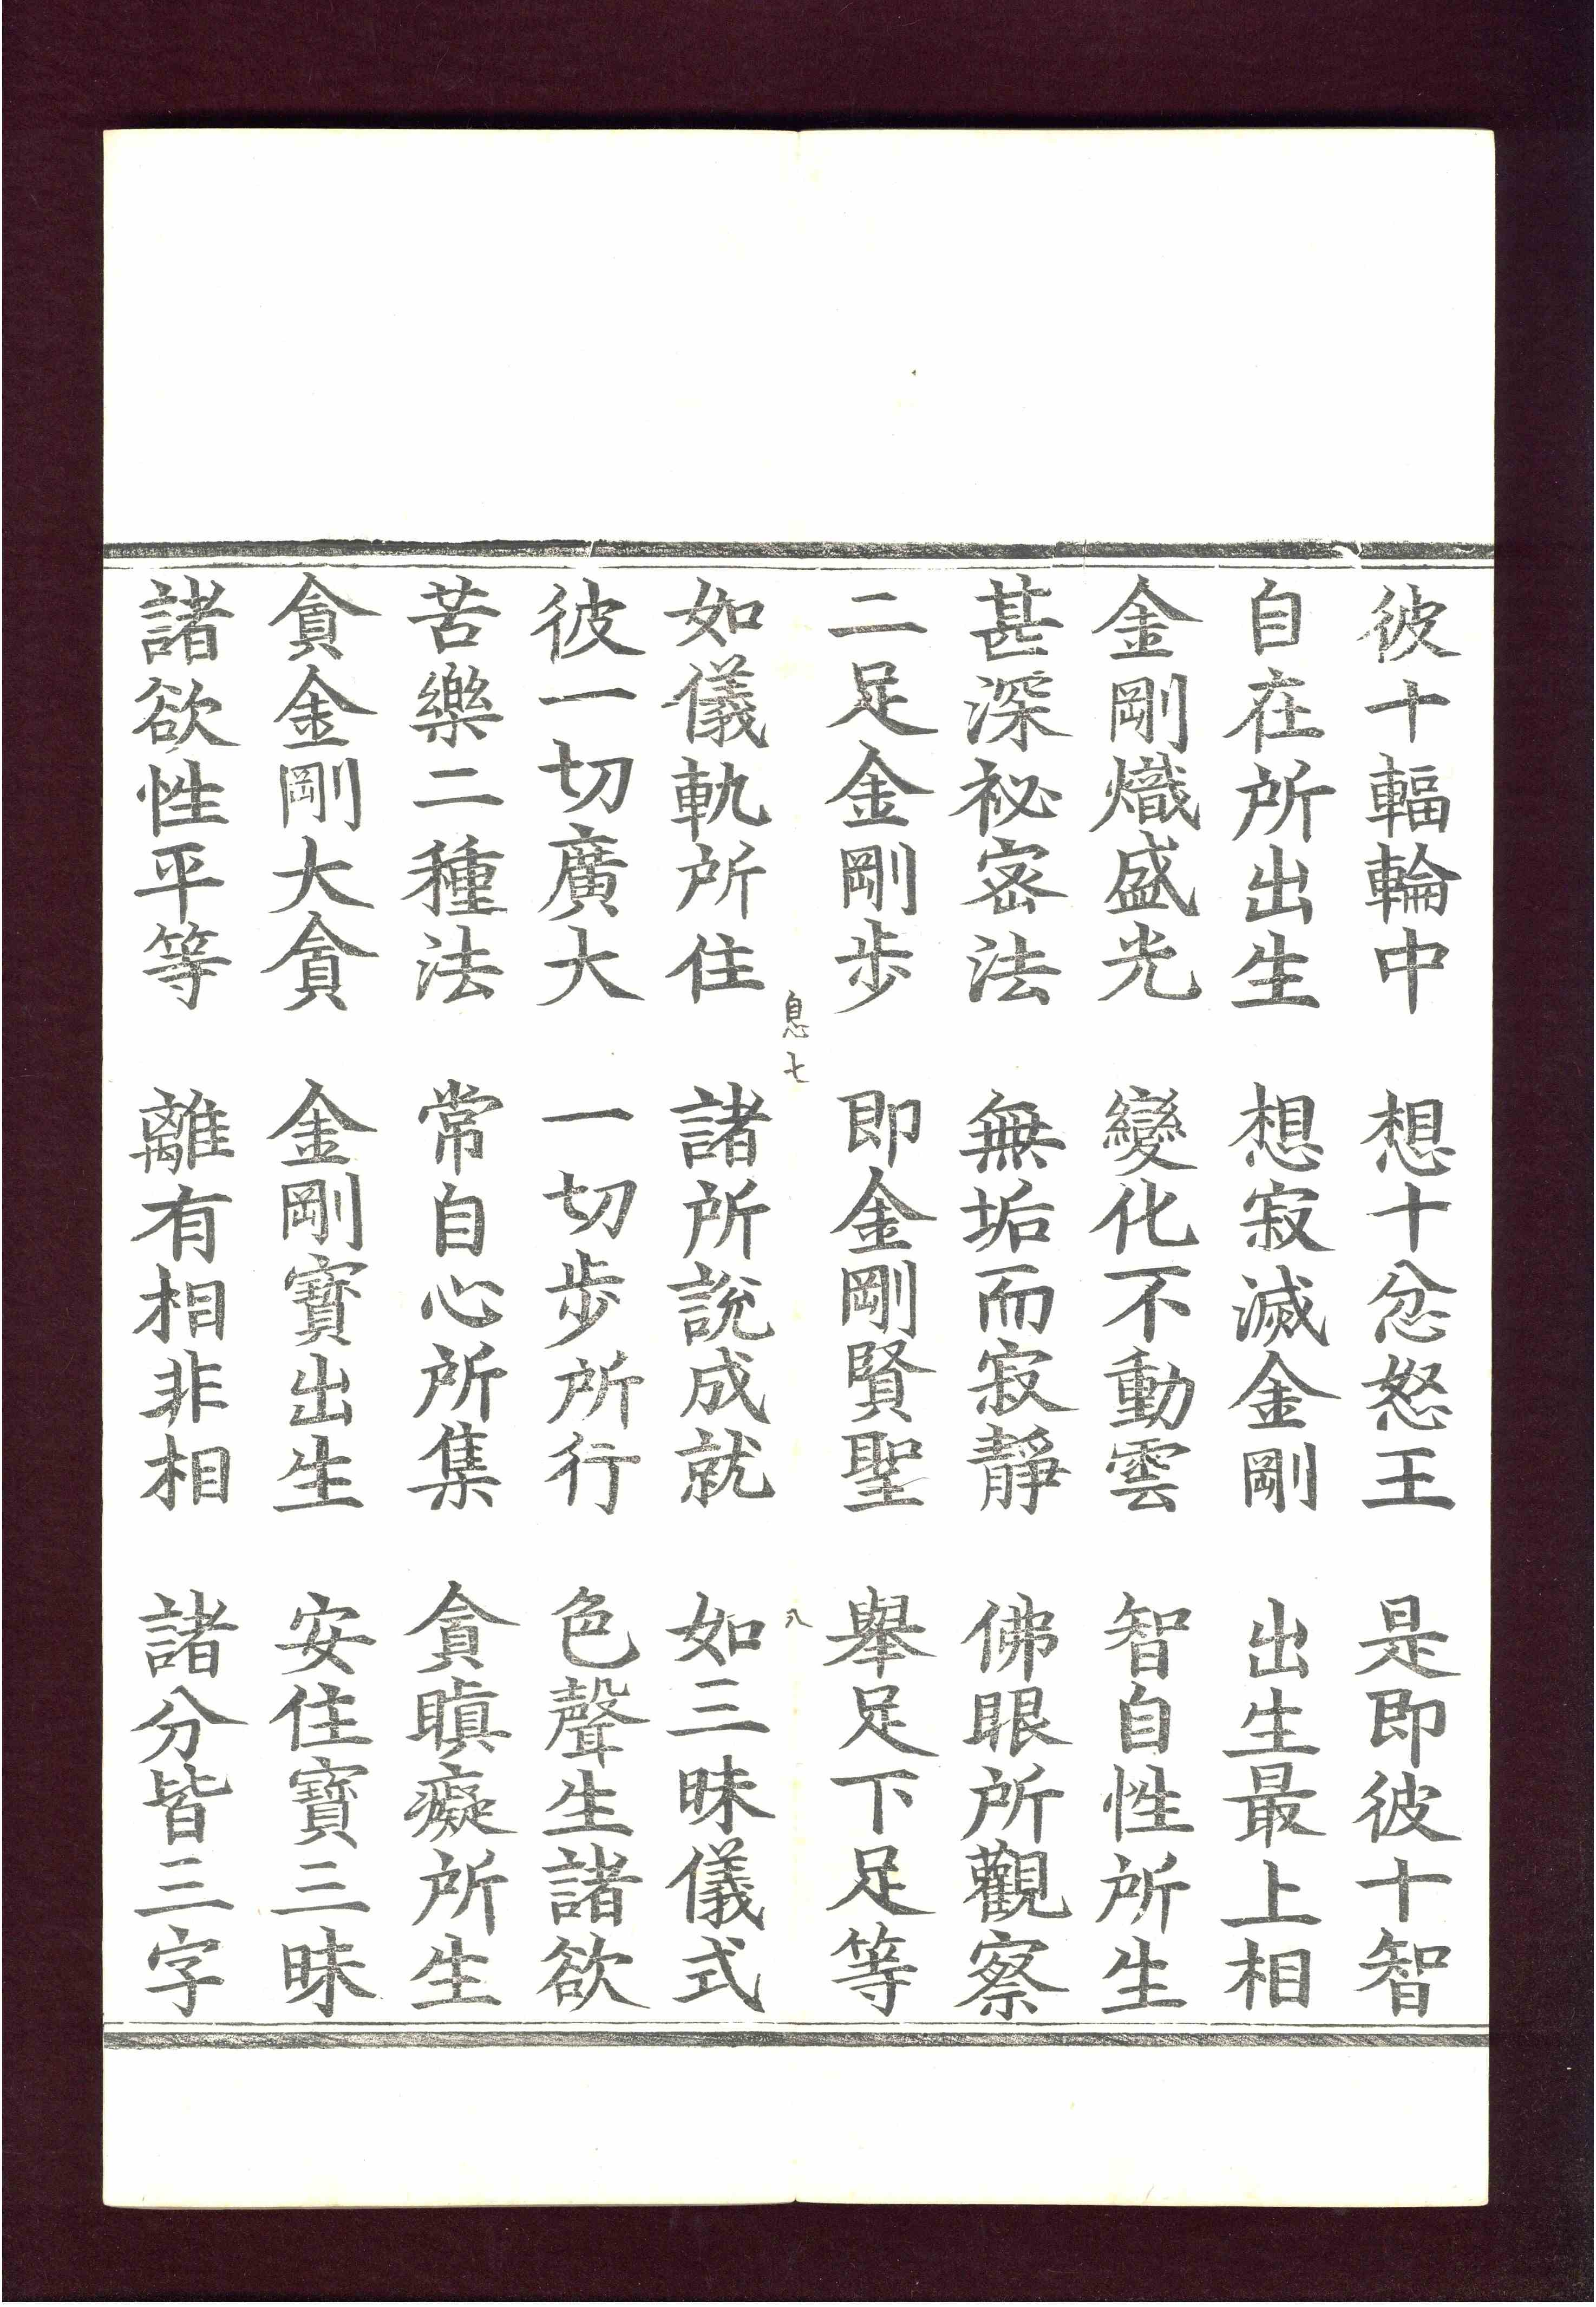 彼十輻輪中　想十忿怒王　是即彼十智
自在所出生　想寂滅金剛　出生最上相
金剛熾盛光　變化不動雲　智自性所生
甚深祕密法　無垢而寂靜　佛眼所觀察
二足金剛步　即金剛賢聖　舉足下足等
息七　八
如儀軌所住　諸所說成就　如三昧儀式
彼一切廣大　一切步所行　色聲生諸欲
苦樂二種法　常自心所集　貪瞋癡所生
貪金剛大貪　金剛寶出生　安住寶三昧
諸欲性平等　離有相非相　諸分皆三字